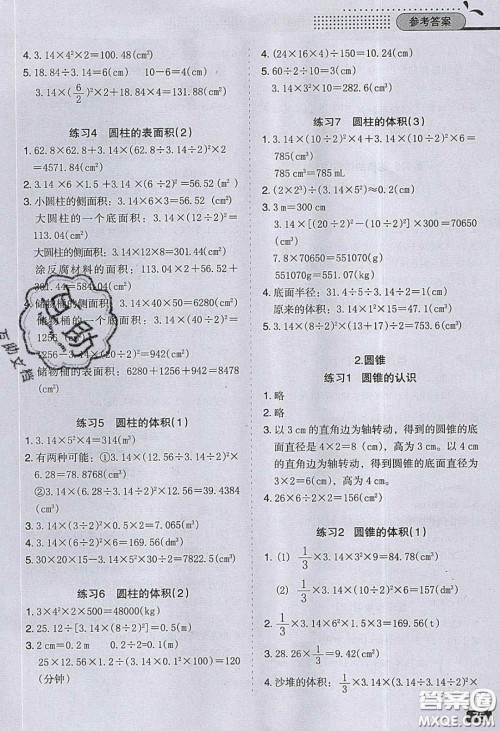 参考答案
4. 3.14×4²×2=100.48(cm²)
5. 18.84÷3.14=6(cm)　10-6=4(cm)
3.14×(6/2)²×2+18.84×4=131.88(cm²)
练习4　圆柱的表面积(2)
1. 62.8×62.8+3.14×(62.8÷3.14÷2)²×2
=4571.84(cm²)
2. 3.14×6×1.5+3.14×(6÷2)²=56.52(m²)
3. 小圆柱的侧面积：3.14×6×3=56.52(cm²)
大圆柱的一个底面积：3.14×(12÷2)²=
113.04(cm²)
大圆柱的侧面积：3.14×12×8=301.44(cm²)
涂反腐材料的面积：113.04×2+56.52+
301.44=584.04(cm²)
4. 储物桶的侧面积：3.14×40×50=6280(cm²)
储物桶的一个底面积：3.14×(40÷2)²=
1256(cm²)
1256-3.14×(20÷2)²=942(cm²)
储物桶的面积：6280+1256+942=8478(cm²)
练习5　圆柱的体积(1)
1. 3.14×5²×4=314(m³)
2. 有两种可能：①3.14×(12.56÷3.14÷2)²×
6.28=78.8768(cm³)
②3.14×(6.28÷3.14÷2)²×12.56=39.4384
(cm³)
3. 3.14×(3÷2)²×2÷2=7.065(m³)
4. 3.14×(6÷2)²×6=169.56(dm³)
5. 30×20×15-3.14×(10÷2)²×15=7822.5(cm³)
练习6　圆柱的体积(2)
1. 3×4²×2×500=48000(kg)
2. 25.12÷[3.14×(8÷2)²]=0.5(m)
3. 2cm=0.02m　0.2÷2=0.1(m)
25×12.56÷(3.14×0.1²×0.02×1000)=120
(分钟)
4. (24×16×4)÷150=10.24(cm)
5. 60÷2÷2÷3=5(cm)
3.14×3²×10=282.6(cm³)
练习7　圆柱的体积(3)
1. 3.14×(10÷2)²×4+3.14×(10÷2)²×6=
785(cm³)
785cm³=785mL
2. (2×2³)÷(3.14×5²)≈0.2(cm)
3. 3m=300cm
3.14×[(20÷2)²-(10÷2)²]×300=70650
(cm³)
7.8×70650=551070(g)
551070g=551.07kg
4. 底面半径：31.4÷5÷3.14÷2=1(cm)
原来的体积：3.14×1²×10=31.4(cm³)
5. 3.14×(8÷2)²×(13+17)÷2=753.6(cm³)
2.圆锥
练习1　圆锥的认识
1. 略
2. 略
3. 以3cm的直角边为轴转动，得到的圆锥的底
面直径是4×2=8(cm)，高为3cm。以4cm
的直角边为轴转动，得到的圆锥的底面直径为
3×2=6(cm)，高为4cm。
4. 26×6÷2×2=156(cm²)
练习2　圆锥的体积(1)
1. (1) 1/3×3.14×3²×9=84.78(cm³)
(2) 1/3×3.14×(10÷2)²×6=157(dm³)
2. 1/3×3.14×6²×3×1.5=169.56(t)
3. 28.26×1/3=9.42(cm³)
互助
互助文档
答案圈
MXQE.COM